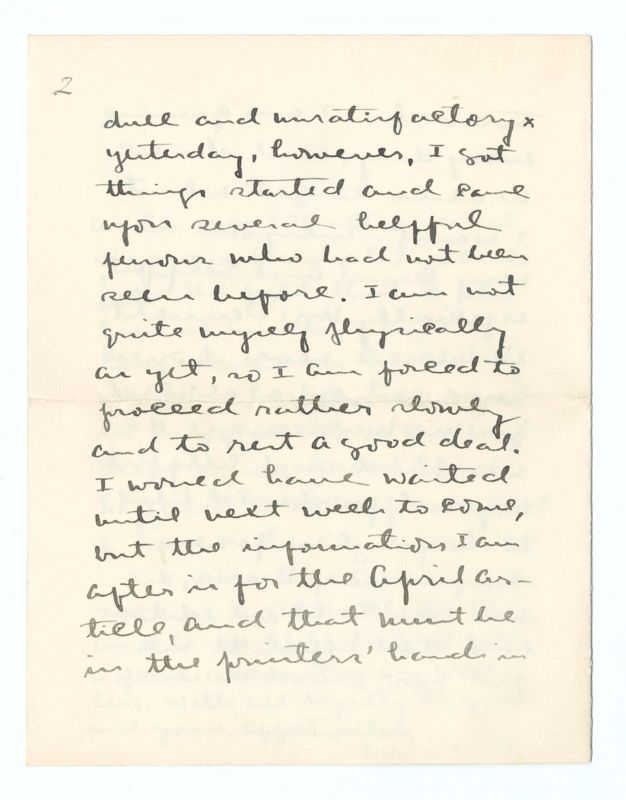 2
dull and unsatisfactory x
yesterday, however, I got
things started and came
upon several helpful
persons who had not been
seen before. I am not
quite myself physically
as yet, so I am forced to
proceed rather slowly
and to rest a good deal.
I would have waited
until next week to come,
but the information I am
after is for the April ar-
ticle, and that must be
in the printers' hands in